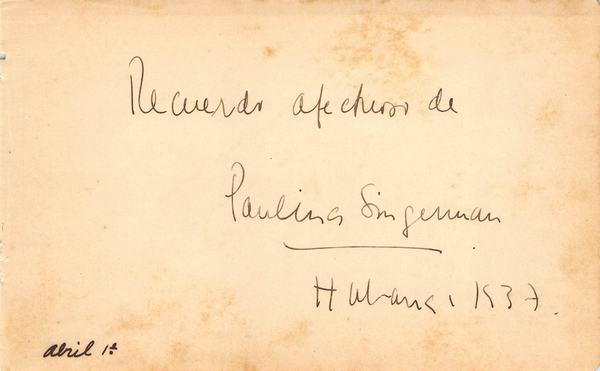 Recuerdo afectuoso de
Paulina Singerman
Habana, 1937.
abril 1º